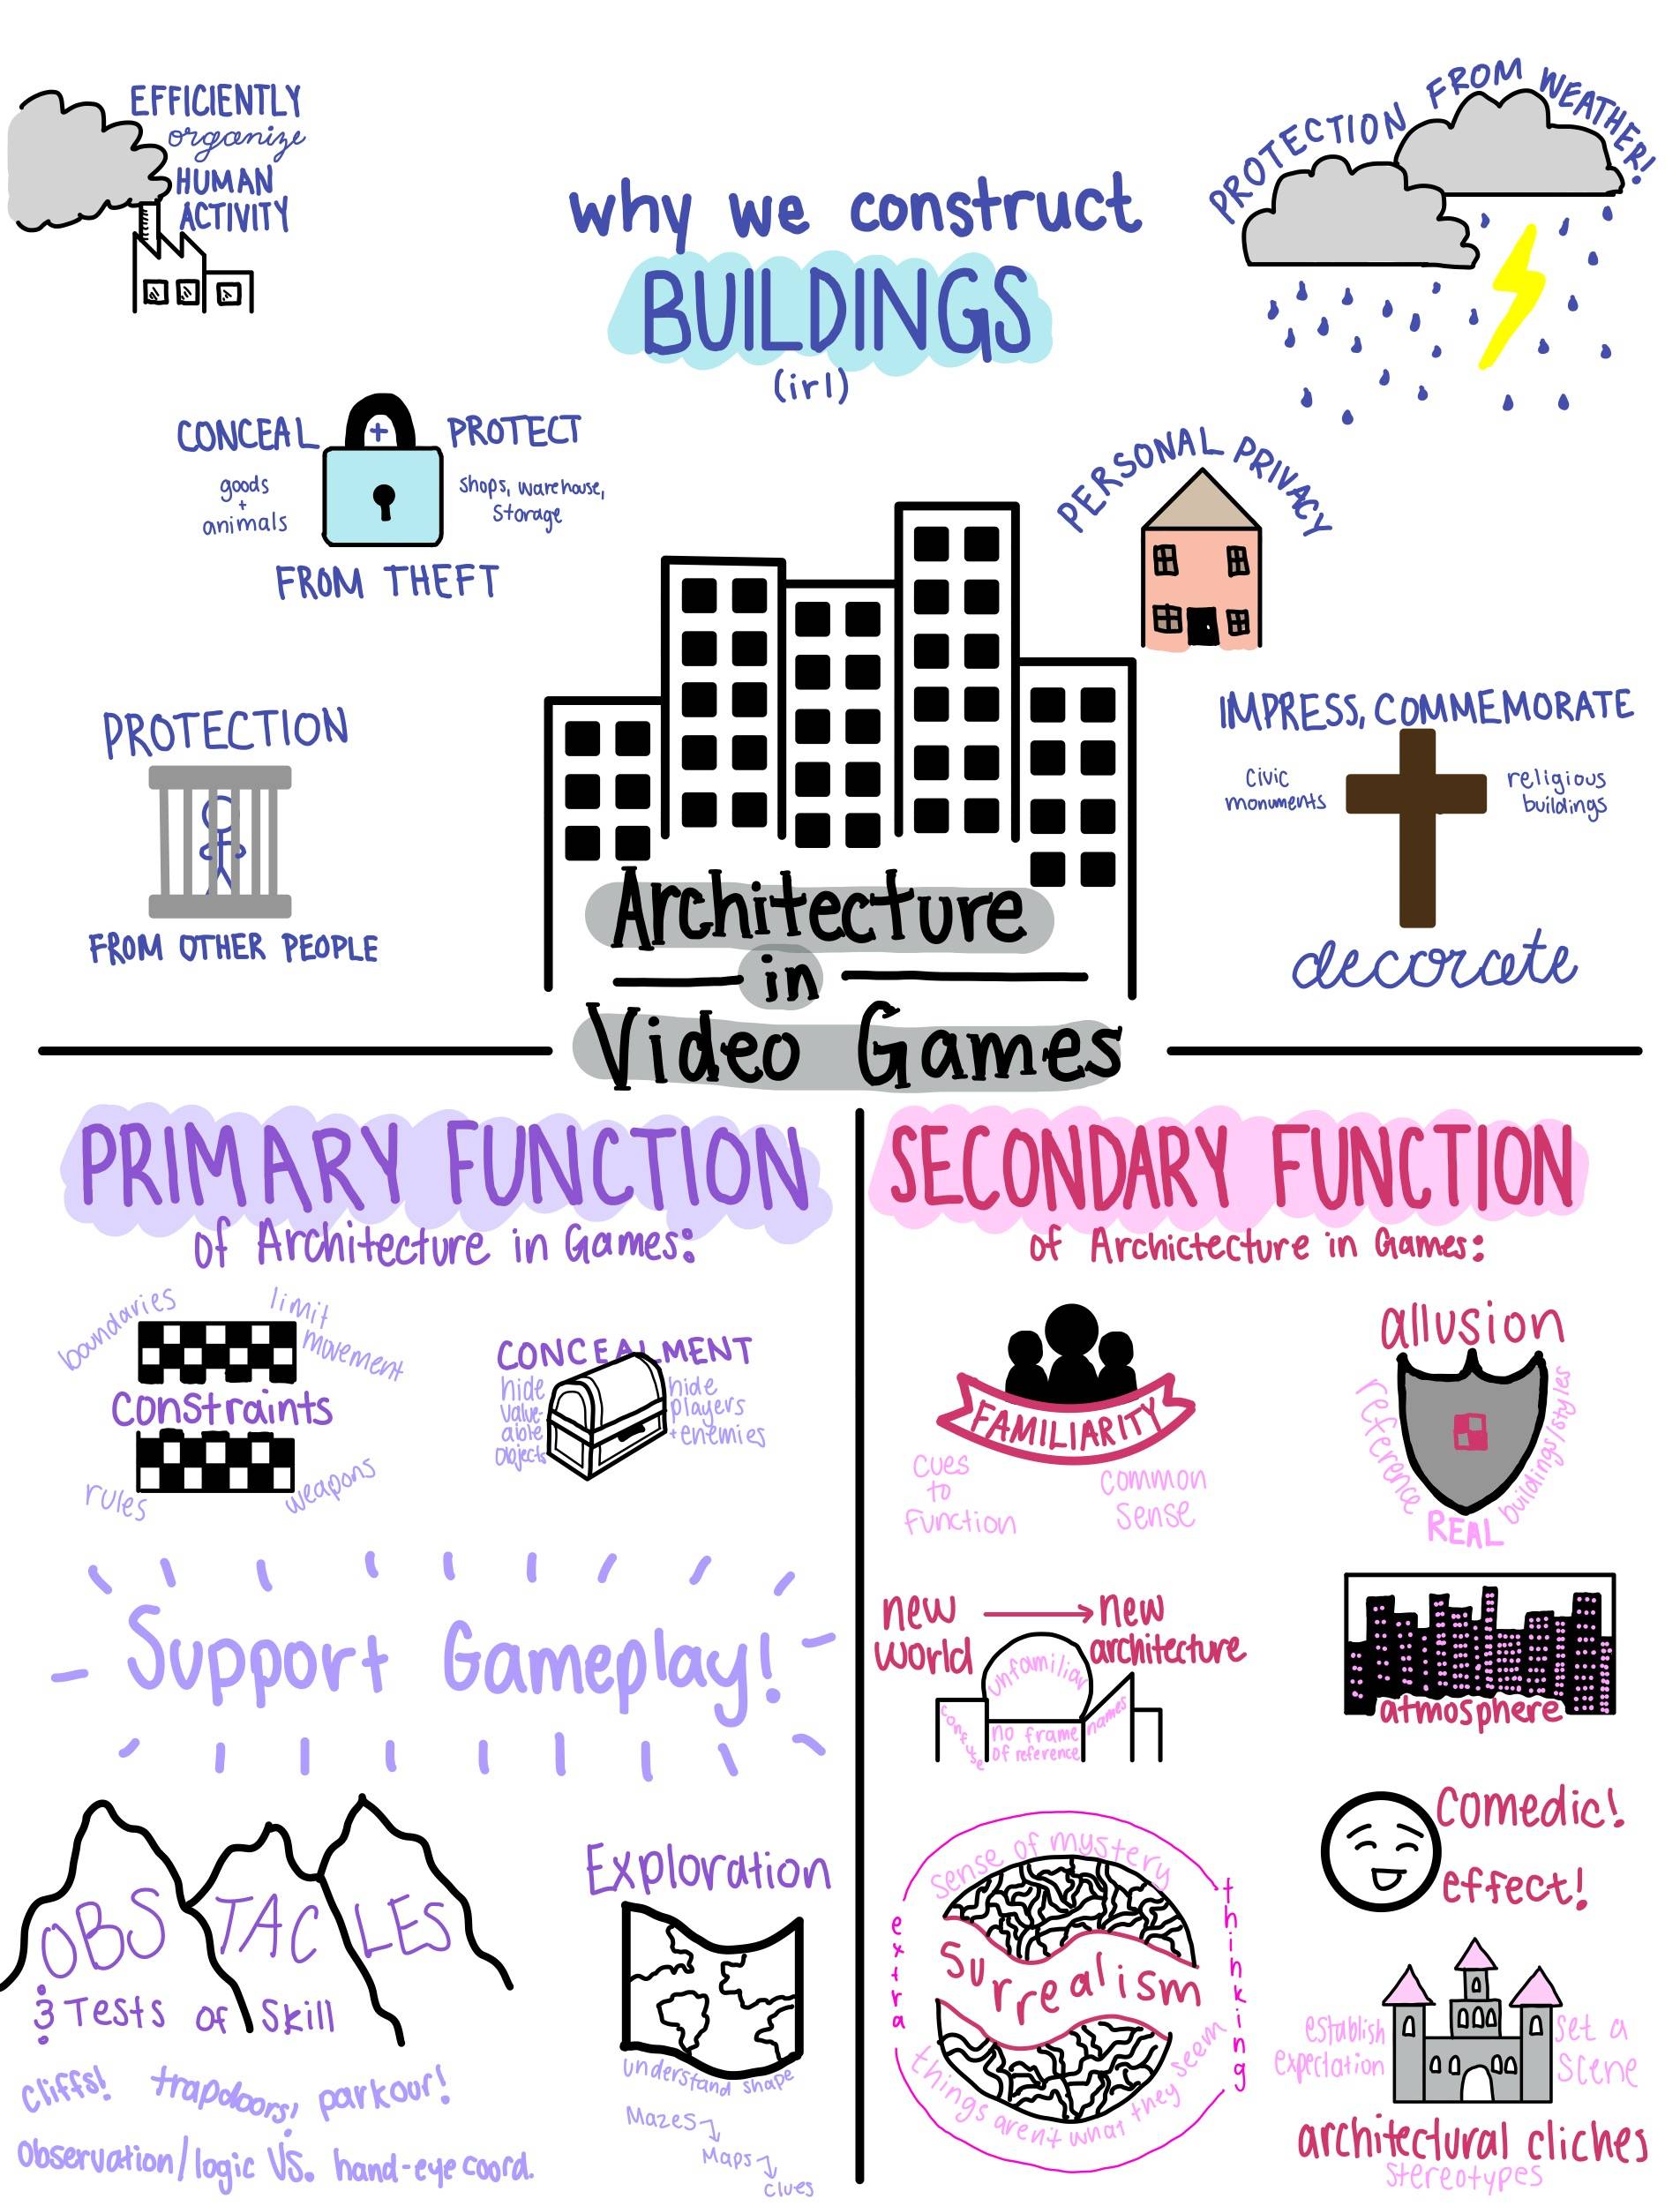 EFFICIENTLY
organize
HUMAN
ACTIVITY
PROTECTION FROM WEATHER!
why we construct
BUILDINGS
(irl)
CONCEAL + PROTECT
goods
+
animals
shops, warehouse,
storage
FROM THEFT
PERSONAL PRIVACY
PROTECTION
FROM OTHER PEOPLE
IMPRESS, COMMEMORATE
civic
monuments
religious
buildings
decorate
Architecture
in
Video Games
PRIMARY FUNCTION
of Architecture in Games:
boundaries
limit
movement
constraints
rules
weapons
CONCEALMENT
hide
value-
able
objects
hide
players
+enemies
Support Gameplay!
OBSTACLES
& Tests of Skill
cliffs! trapdoors! parkour!
observation/logic Vs. hand-eye coord.
Exploration
understand shape
Mazes
Maps
clues
SECONDARY FUNCTION
of Archictecture in Games:
FAMILIARITY
cues
to
function
common
sense
allusion
reference
REAL
buildings/styles
new
world
new
architecture
unfamiliar
confuse
no frame
of reference
names
atmosphere
Comedic!
effect!
Sense of mystery
extra
thinking
Surrealism
things aren't what they seem
establish
expectation
set a
scene
architectural cliches
stereotypes